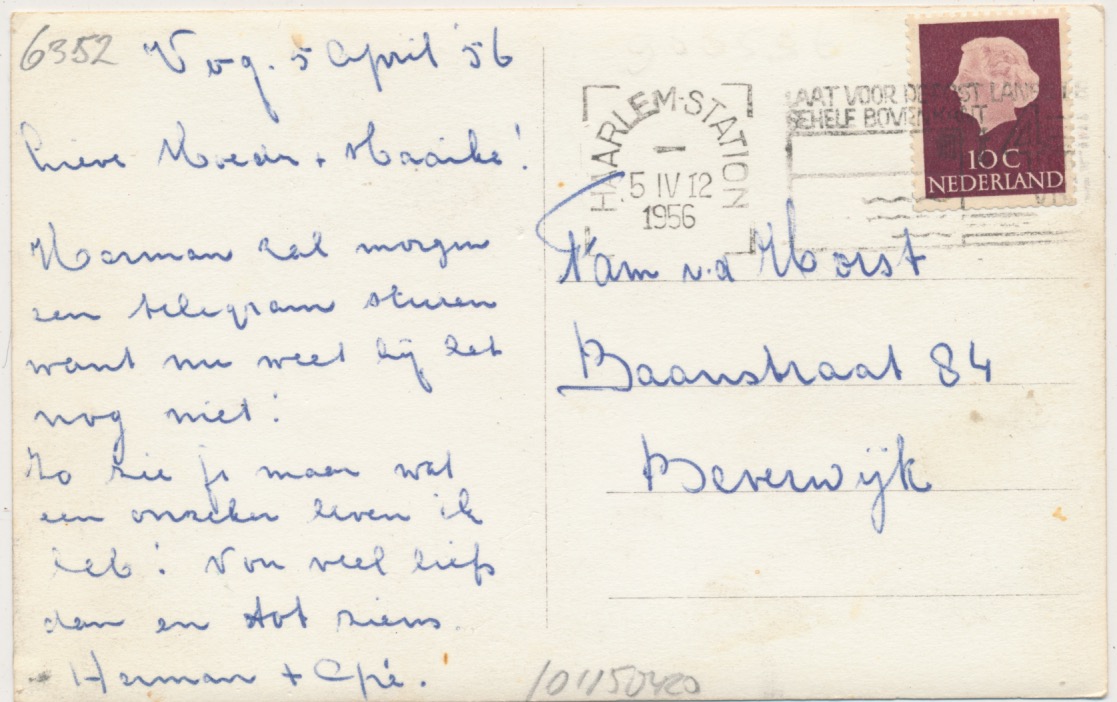 6352
Vog. 5 April '56
Lieve Moeder + Maaike!
Herman zal morgen
een telegram sturen
want nu weet hij het
nog niet!
Zo zie je maar wat
een onzeker leven ik
heb! Nou veel liefs
dan en tot ziens.
Herman + Cpé.
HAARLEM-STATION
5 IV 12
1956
LAAT VOOR DE POST
GEHELE BOVENKANT
10 C
NEDERLAND
Fam v.d Horst
Baanstraat 84
Beverwijk
101150420